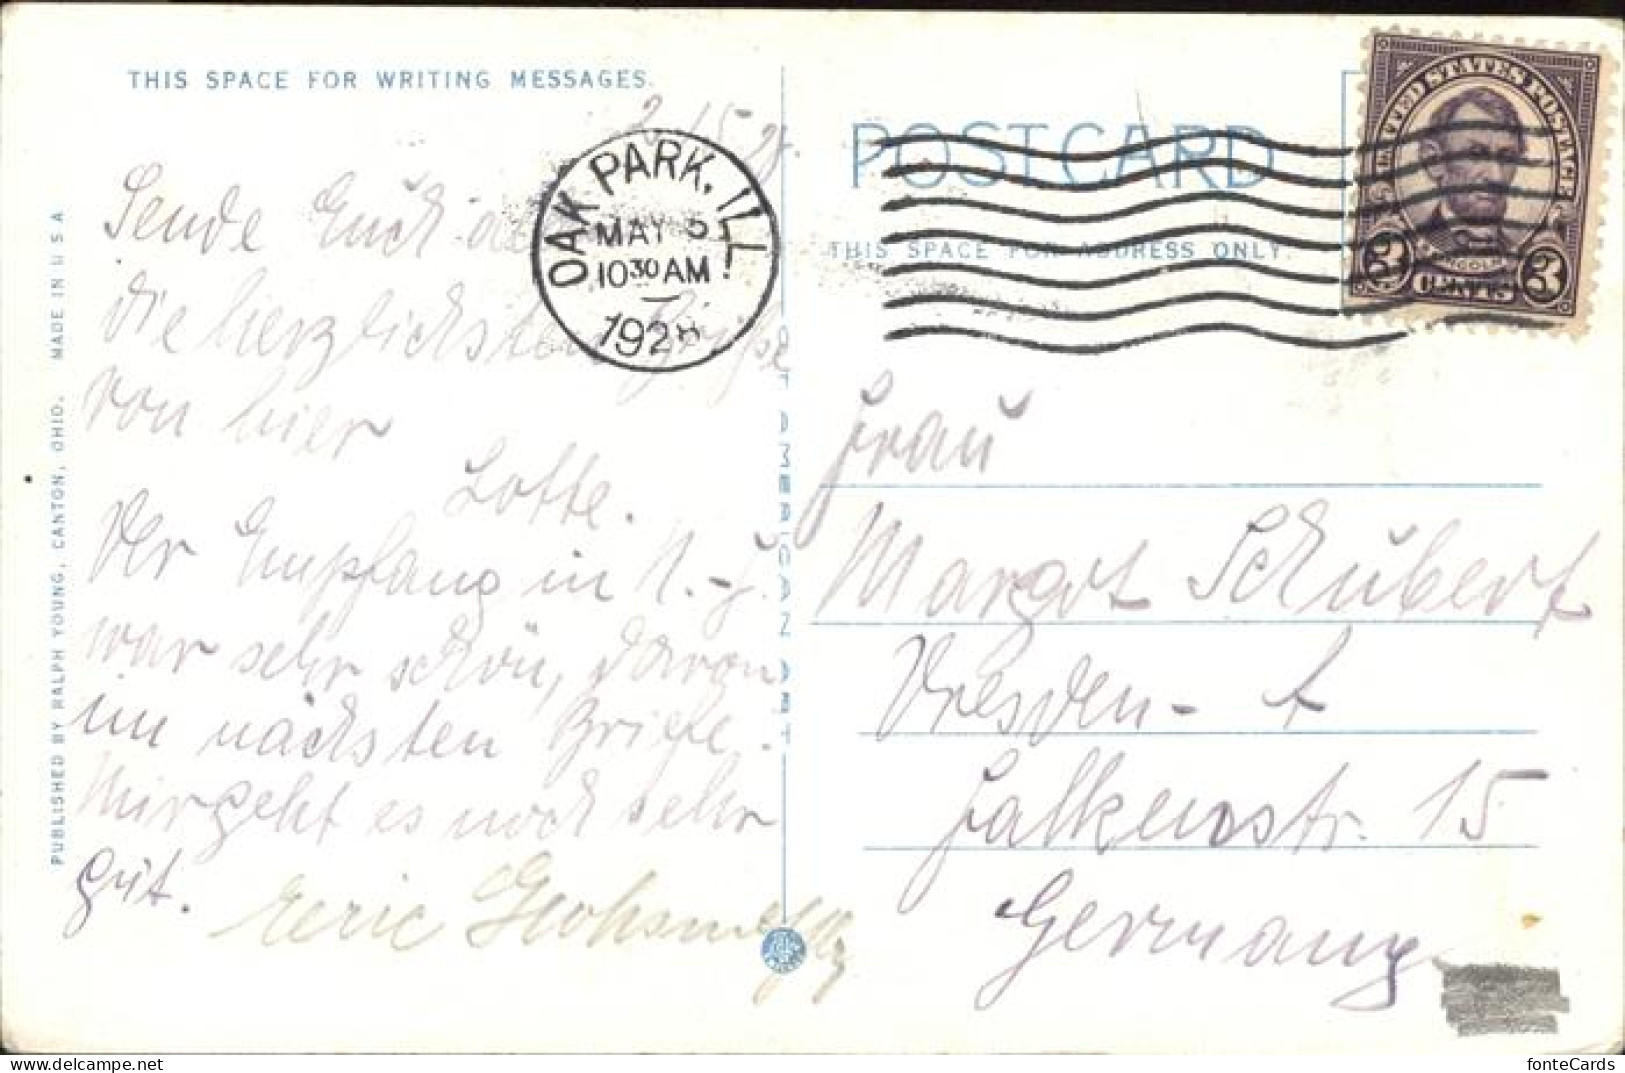 THIS SPACE FOR WRITING MESSAGES.
Sende Euch
die herzlichsten Grüsse
von hier
Lotte.
Der Empfang in N.-J.
war sehr schön, davon
im nächsten Briefe.
Mir geht es noch sehr
gut.
PUBLISHED BY RALPH YOUNG, CANTON, OHIO. MADE IN U.S.A
OAK PARK, ILL.
MAY 5
10 30 AM
1928
AMERICAN ART
POST CARD
THIS SPACE FOR ADDRESS ONLY.
UNITED STATES POSTAGE
LINCOLN
3 CENTS 3
Frau
Margot Schubert
Dresden - A
Falkenstr. 15
Germany
fonteCards